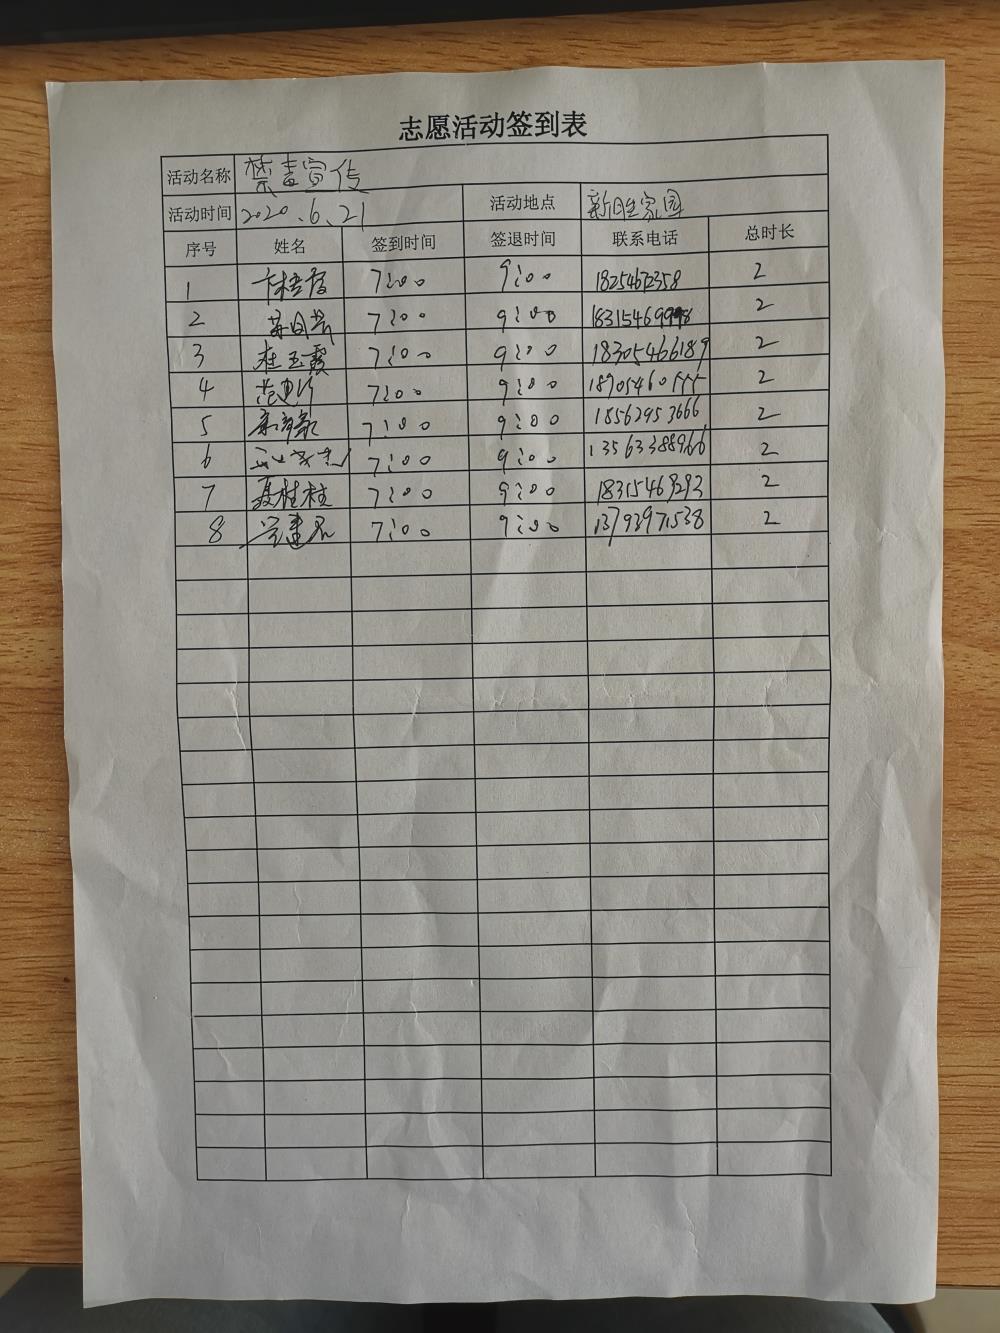 志愿活动签到表
活动名称 禁毒宣传
活动时间 2020.6.21 活动地点 新胜家园
序号 姓名 签到时间 签退时间 联系电话 总时长
1 7:00 9:00 2
2 7:00 9:00 2
3 杜玉霞 7:00 9:00 18305466189 2
4 7:00 9:00 2
5 7:00 9:00 18562953666 2
6 7:00 9:00 13563388966 2
7 聂桂柱 7:00 9:00 18315469293 2
8 7:00 9:00 13793971538 2